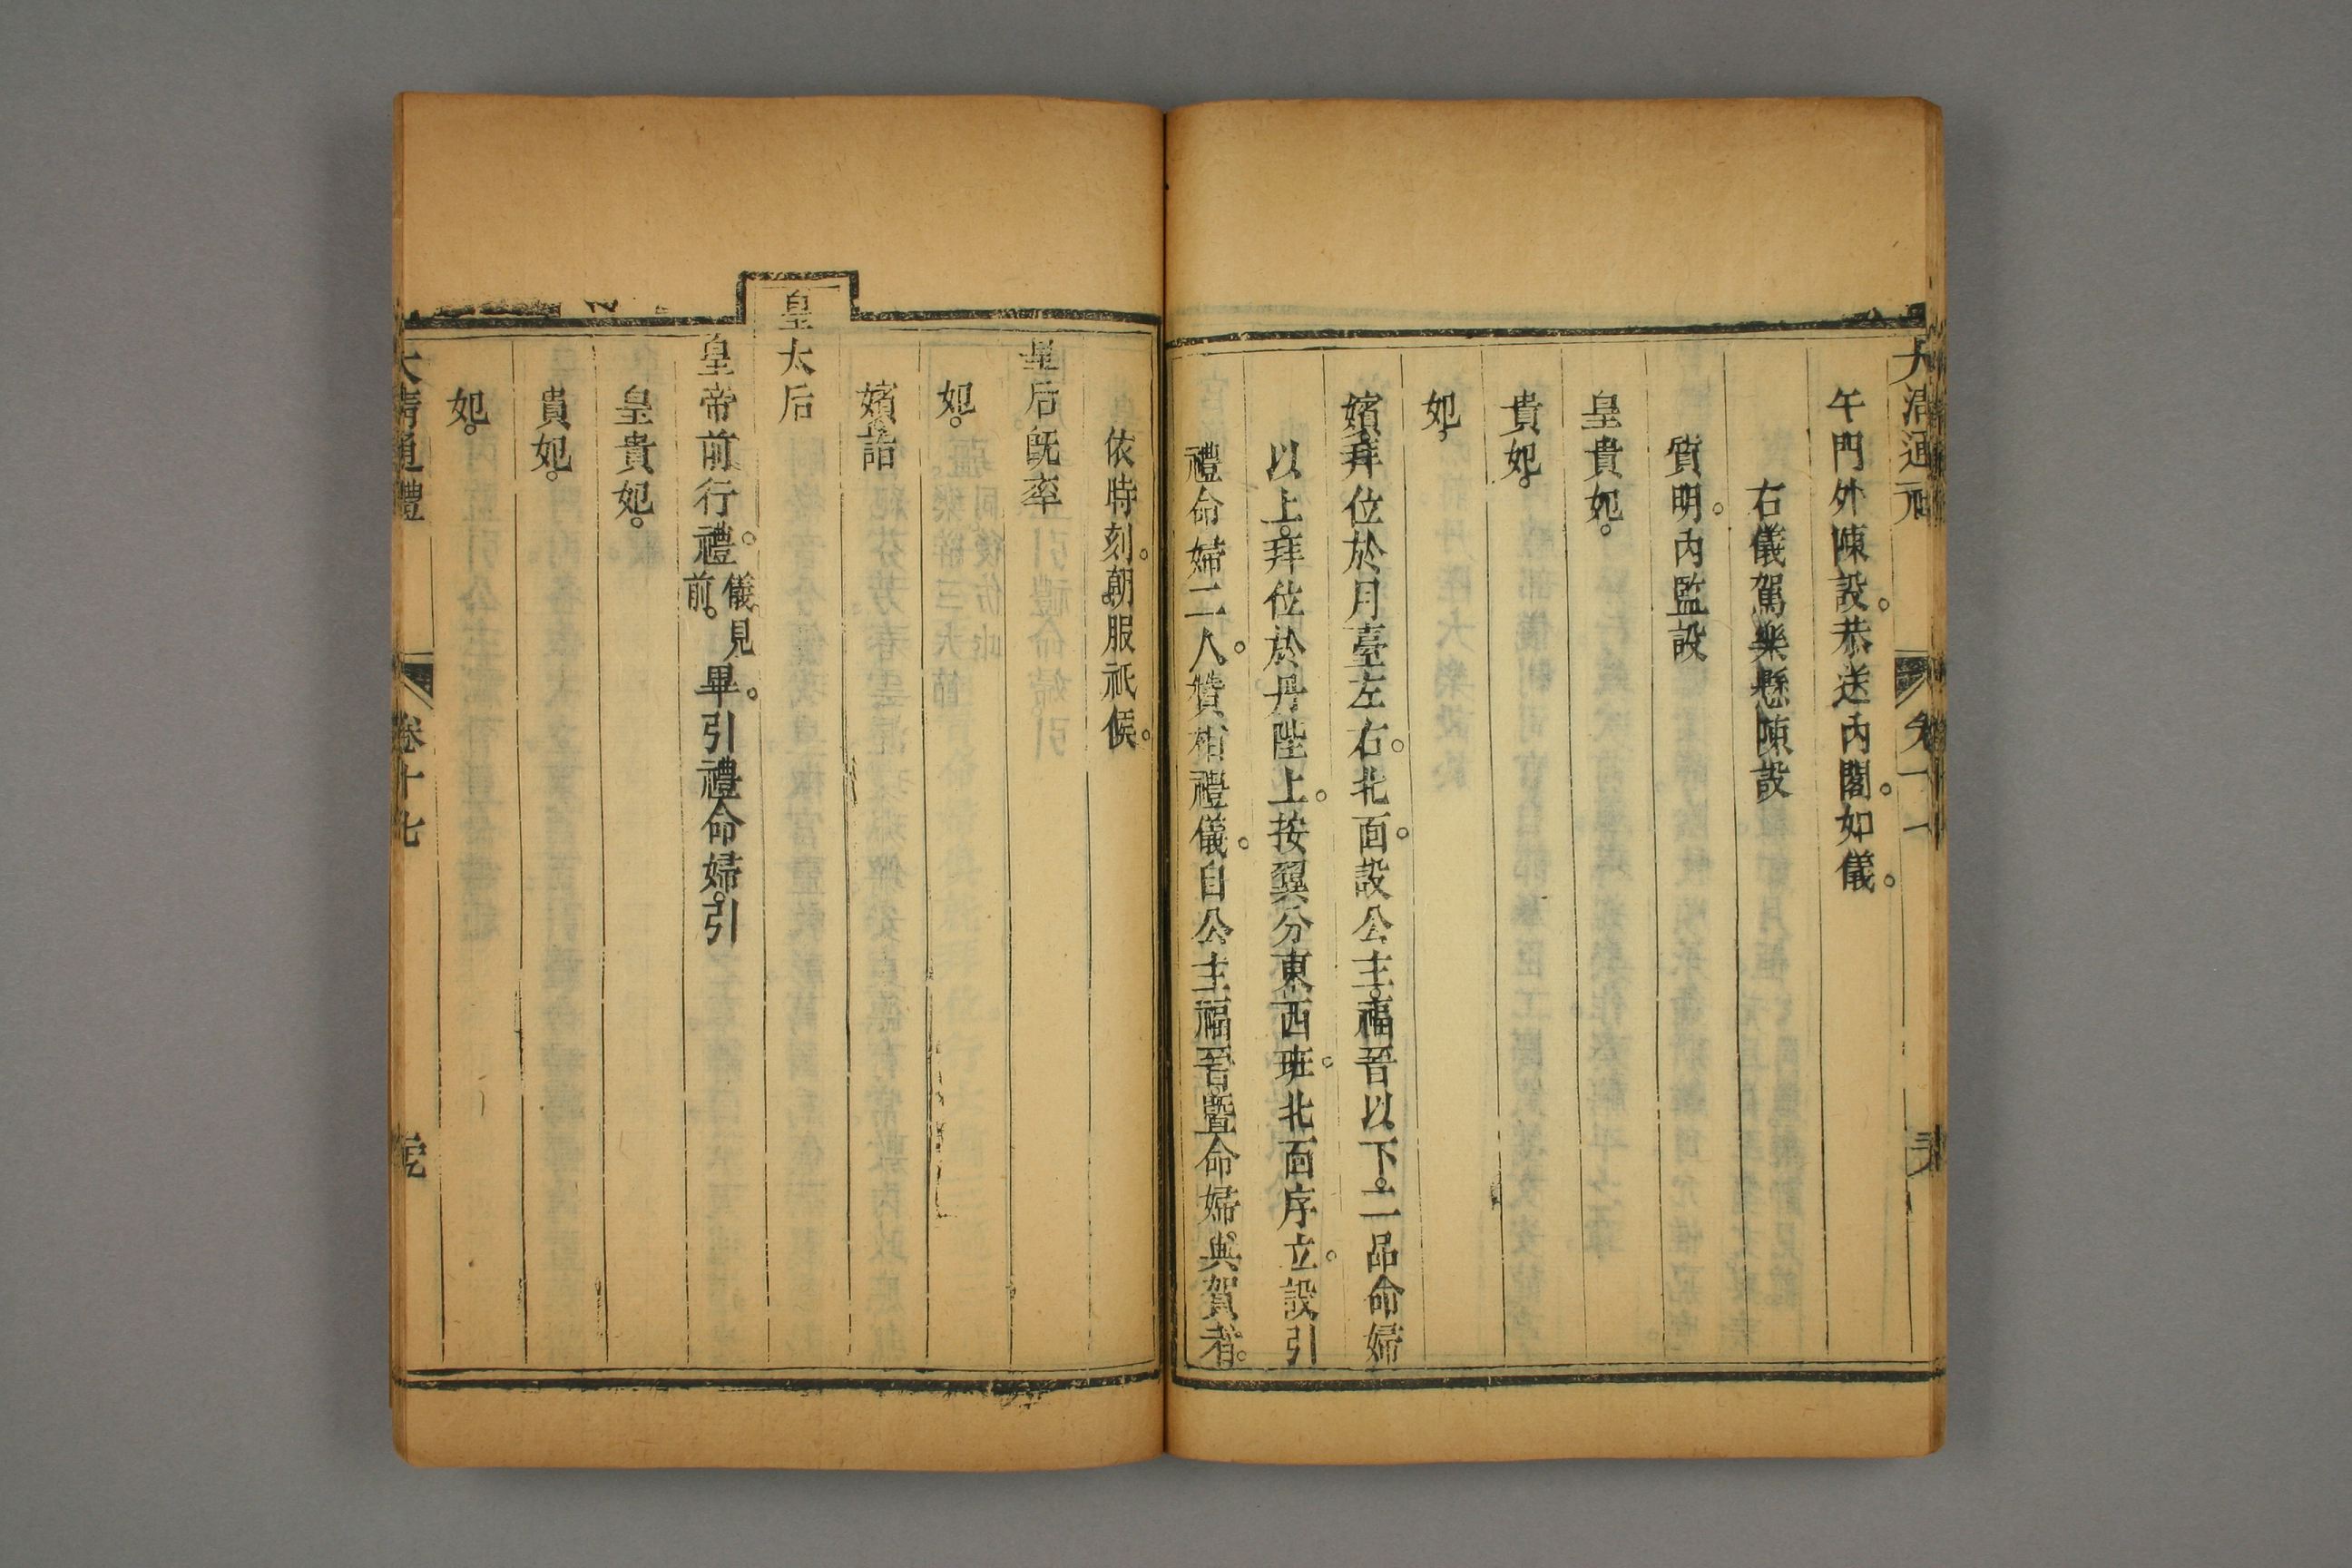 大清通禮
午門外陳設。恭送內閣。如儀。
右儀駕樂懸陳設
質明。內監設
皇貴妃。
貴妃。
妃。
嬪。拜位於月臺左右。北面。設公主。福晉以下。二品命婦
以上。拜位於丹陛上。按翼分東西班。北面序立。設引
禮命婦二人。贊相禮儀。自公主福晉。暨命婦。與賀者。
依時刻。朝服祇候。
皇后既率
妃。
嬪。詣
皇太后
皇帝前行禮。儀見前。畢。引禮命婦。引
皇貴妃。
貴妃。
妃。
大清通禮 卷十七